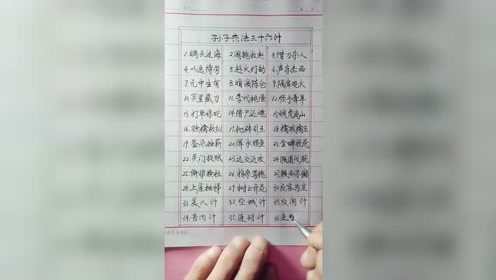 孙子兵法三十六计
1.瞒天过海 2.围魏救赵 3.借刀杀人
4.以逸待劳 5.趁火打劫 6.声东击西
7.无中生有 8.暗渡陈仓 9.隔岸观火
10.笑里藏刀 11.李代桃僵 12.顺手牵羊
13.打草惊蛇 14.借尸还魂 15.调虎离山
16.欲擒故纵 17.抛砖引玉 18.擒贼擒王
19.釜底抽薪 20.浑水摸鱼 21.金蝉脱壳
22.关门捉贼 23.远交近攻 24.假道伐虢
25.偷梁换柱 26.指桑骂槐 27.假痴不癫
28.上屋抽梯 29.树上开花 30.反客为主
31.美人计 32.空城计 33.反间计
34.苦肉计 35.连环计 36.走为